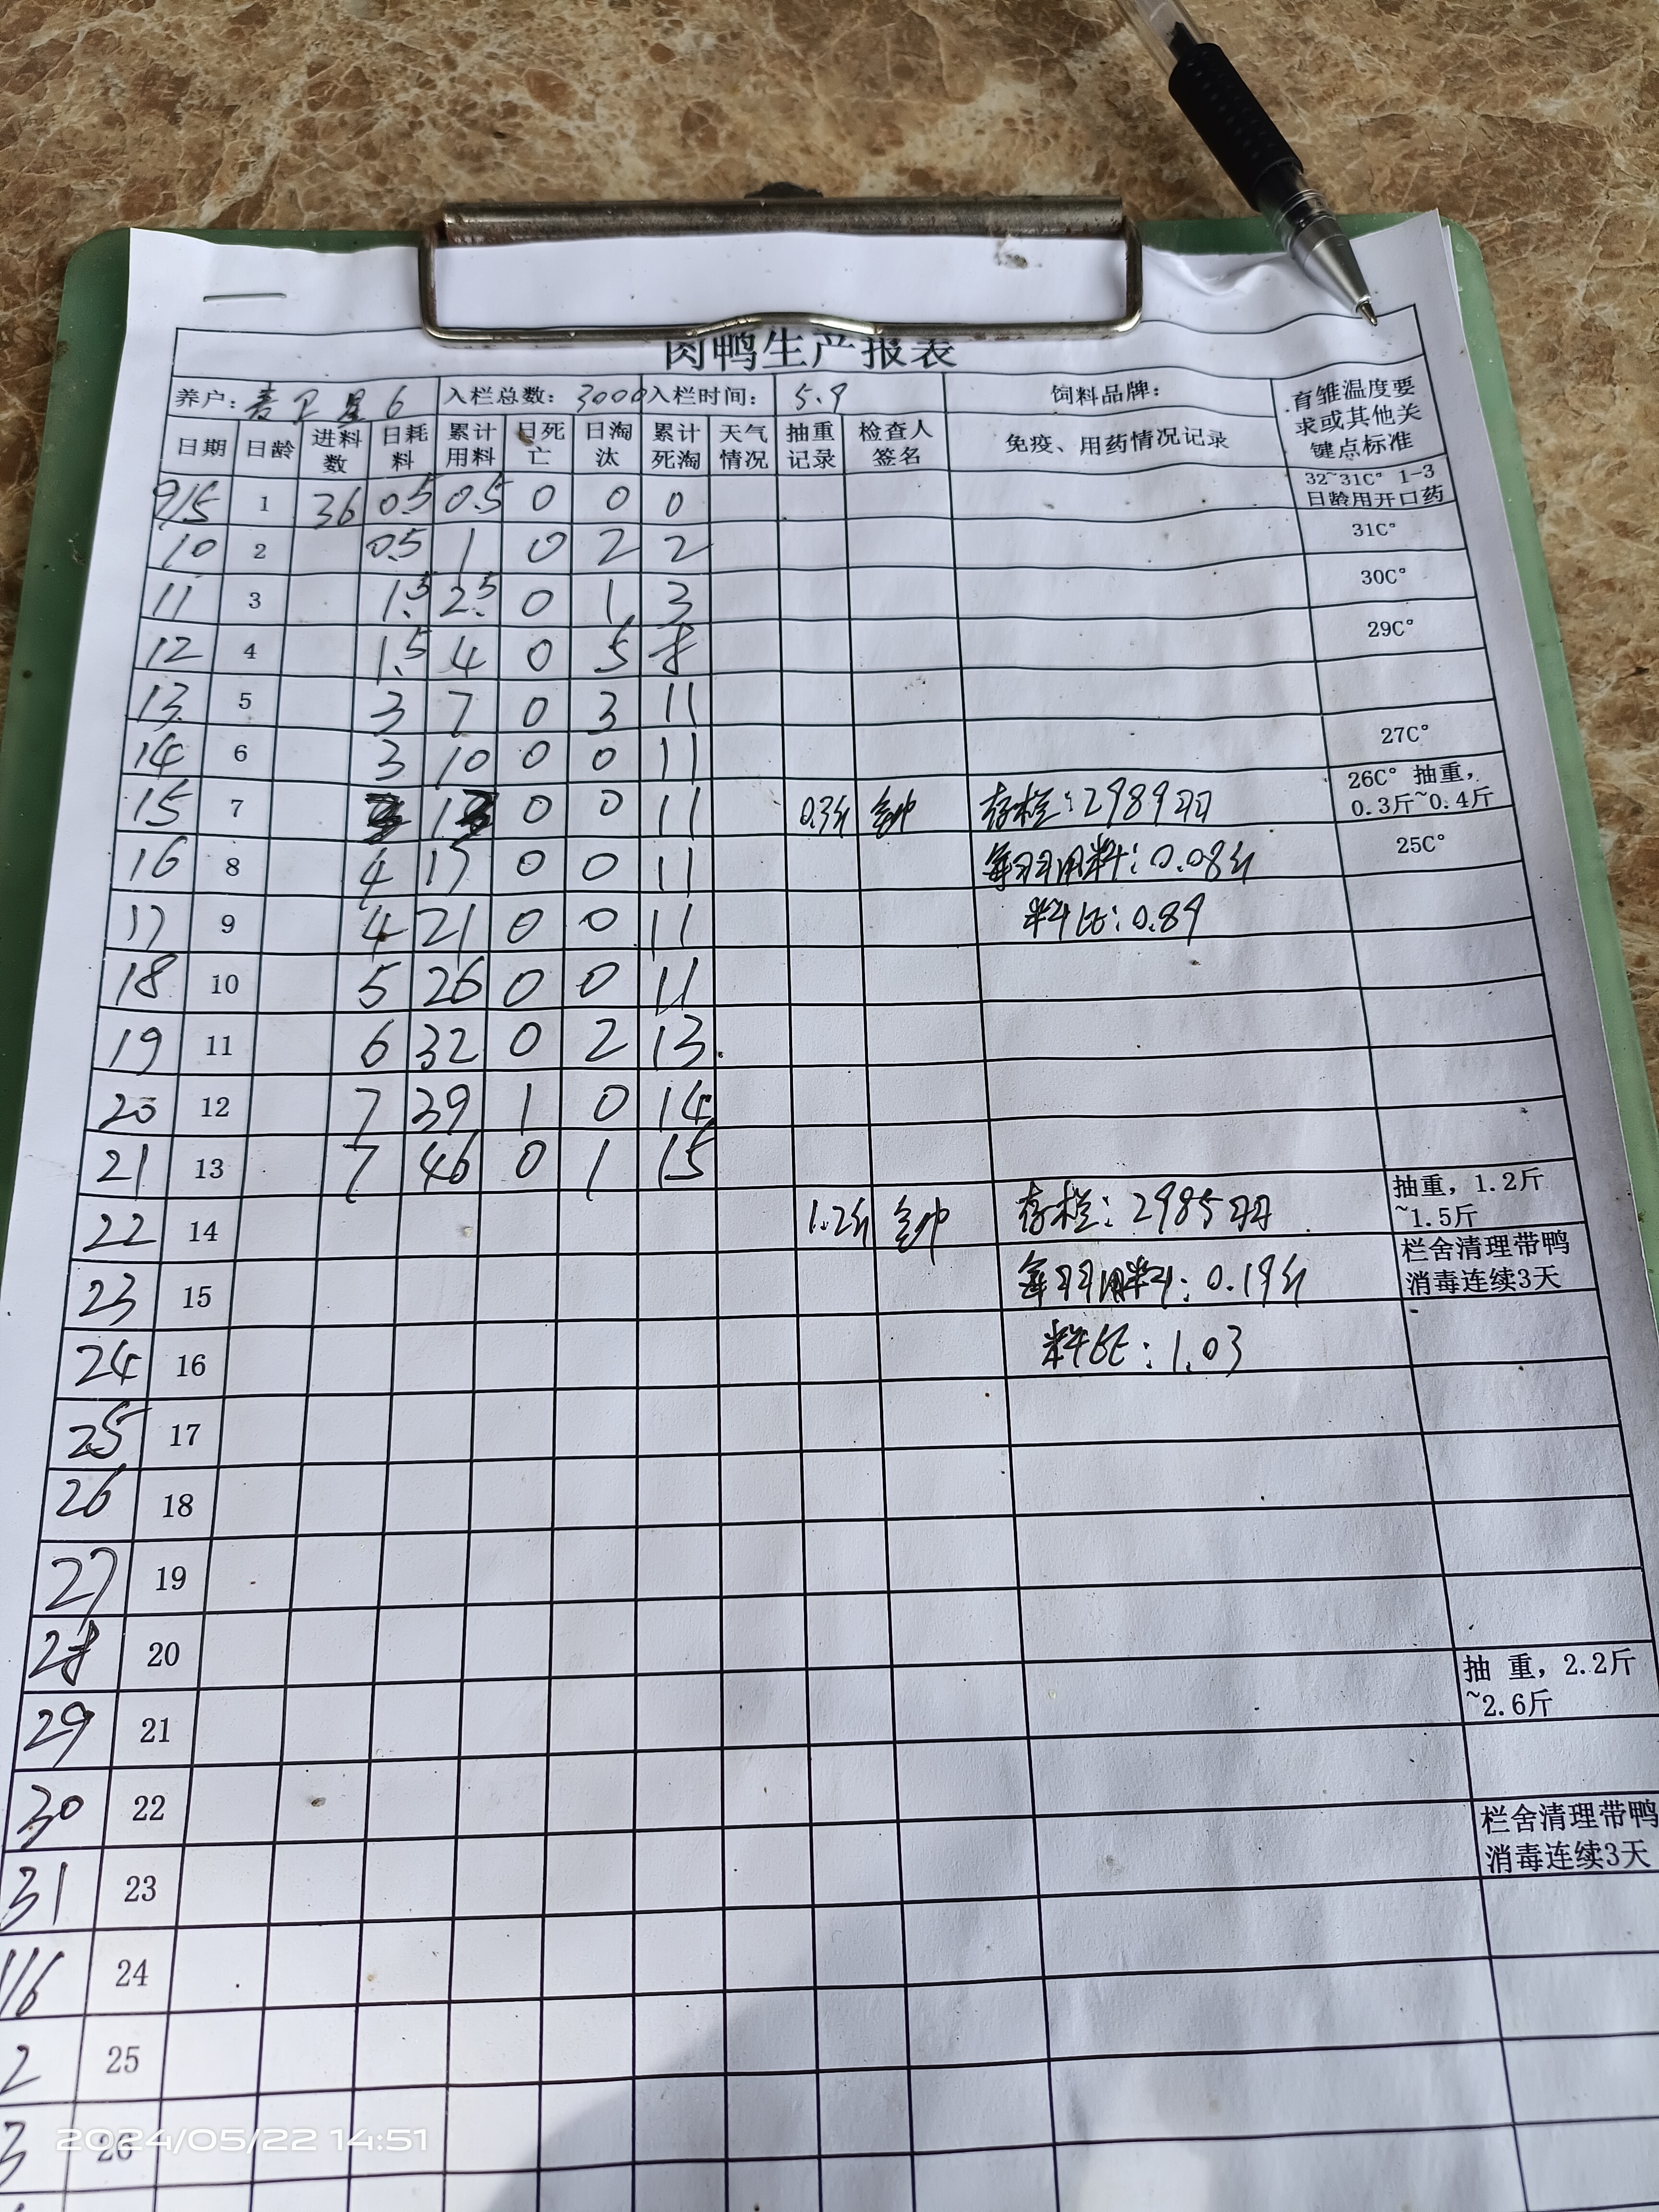 肉鸭生产报表
养户: 卫星6 入栏总数: 3000 入栏时间: 5.9 饲料品牌: 育雏温度要求或其他关键点标准
日期 日龄 进料数 日耗料 累计用料 日死亡 日淘汰 累计死淘 天气情况 抽重记录 检查人签名 免疫、用药情况记录
9/5 1 36 0.5 0.5 0 0 0 32~31C° 1-3日龄用开口药
10 2 0.5 1 0 2 2 31C°
11 3 1.5 2.5 0 1 3 30C°
12 4 1.5 4 0 5 8 29C°
13 5 3 7 0 3 11
14 6 3 10 0 0 11 27C°
15 7 0 0 11 0.3斤 存栏:2989羽 26C° 抽重,0.3斤~0.4斤
16 8 4 17 0 0 11 每羽用料:0.08斤 25C°
17 9 4 21 0 0 11 料比:0.89
18 10 5 26 0 0 11
19 11 6 32 0 2 13
20 12 7 39 1 0 14
21 13 7 46 0 1 15
22 14 1.2斤 存栏:2985羽 抽重,1.2斤~1.5斤
23 15 每羽用料:0.19斤 栏舍清理带鸭消毒连续3天
24 16 料比:1.03
25 17
26 18
27 19
28 20
29 21 抽 重,2.2斤~2.6斤
30 22
31 23 栏舍清理带鸭消毒连续3天
1/6 24
2 25
3 26
2024/05/22 14:51